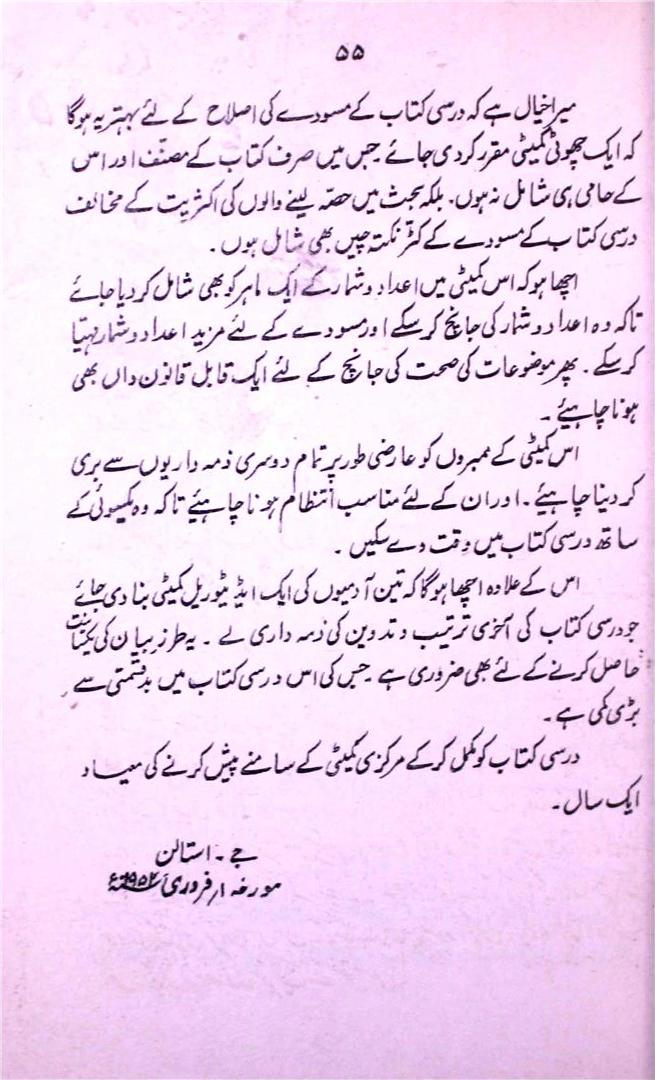 ۵۵
میرا خیال ہے کہ درسی کتاب کے مسودے کی اصلاح کے لئے بہتر یہ ہوگا
کہ ایک چھوٹی کمیٹی مقرر کردی جائے جس میں صرف کتاب کے مصنّف اور اس
کے حامی ہی شامل نہ ہوں۔ بلکہ بحث میں حصّہ لینے والوں کی اکثریت کے مخالف
درسی کتاب کے مسودے کے کٹر نکتہ چیں بھی شامل ہوں۔
اچھا ہو کہ اس کمیٹی میں اعداد و شمار کے ایک ماہر کو بھی شامل کردیا جائے
تاکہ وہ اعداد و شمار کی جانچ کرسکے اور مسودے کے لئے مزید اعداد و شمار مہیّا
کرسکے۔ پھر موضوعات کی صحت کی جانچ کے لئے ایک قابل قانون داں بھی
ہونا چاہیئے۔
اس کمیٹی کے ممبروں کو عارضی طور پر تمام دوسری ذمہ داریوں سے بری
کردینا چاہیئے۔ اور ان کے لئے مناسب انتظام ہونا چاہیئے تاکہ وہ یکسوئی کے
ساتھ درسی کتاب میں وقت دے سکیں۔
اس کے علاوہ اچھا ہوگا کہ تین آدمیوں کی ایک ایڈیٹوریل کمیٹی بنادی جائے
جو درسی کتاب کی آخری ترتیب و تدوین کی ذمہ داری لے۔ یہ طرز بیان کی یکسانیت
حاصل کرنے کے لئے بھی ضروری ہے جس کی اس درسی کتاب میں بدقسمتی سے
بڑی کمی ہے۔
درسی کتاب کو مکمل کرکے مرکزی کمیٹی کے سامنے پیش کرنے کی میعاد
ایک سال۔
جے۔ استالن
مورخہ ۱ر فروری ۱۹۵۲ء